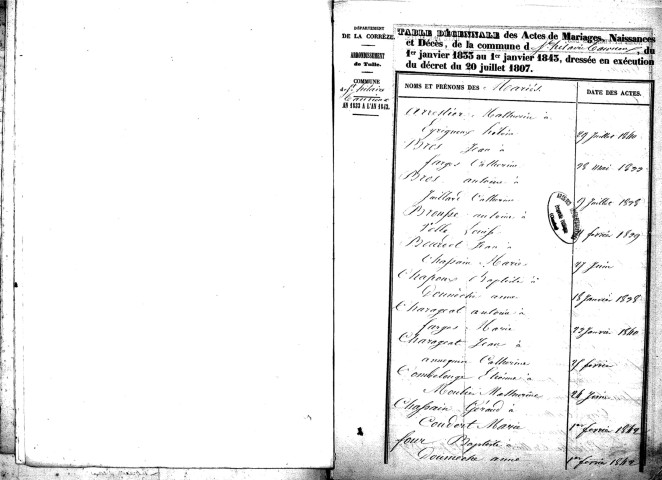 DÉPARTEMENT
DE LA CORRÈZE.
ARRONDISSEMENT
de Tulle.
COMMUNE
de St hilaire
Taurieux
AN 1833 A L'AN 1843.
TABLE DÉCENNALE des Actes de Mariages, Naissances
et Décès, de la commune d St hilaire Taurieux, du
1er janvier 1833 au 1er janvier 1843, dressée en exécution
du décret du 20 juillet 1807.
NOMS ET PRÉNOMS DES Mariés.
DATE DES ACTES.
Mathurin à
Eyrignoux
29 juillet 1840
Bros Jean à
farges Catherine
28 mai 1833
Bros antoine à
Juillard Catherine
9 juillet 1838
Brousse antoine à
Louise
février 1839
Jean à
Chassain Marie
27 Juin
Baptiste à
Doumeche anne
18 janvier 1838
Charageat antoine à
farges Marie
22 janvier 1840
Charageat Jean à
Catherine
25 février
Combelonge Etienne à
Moulin Mathurine
24 Juin
Chassain Gérand à
Coudert Marie
1er février 1842
four Baptiste à
Doumeche anne
1er février 1842